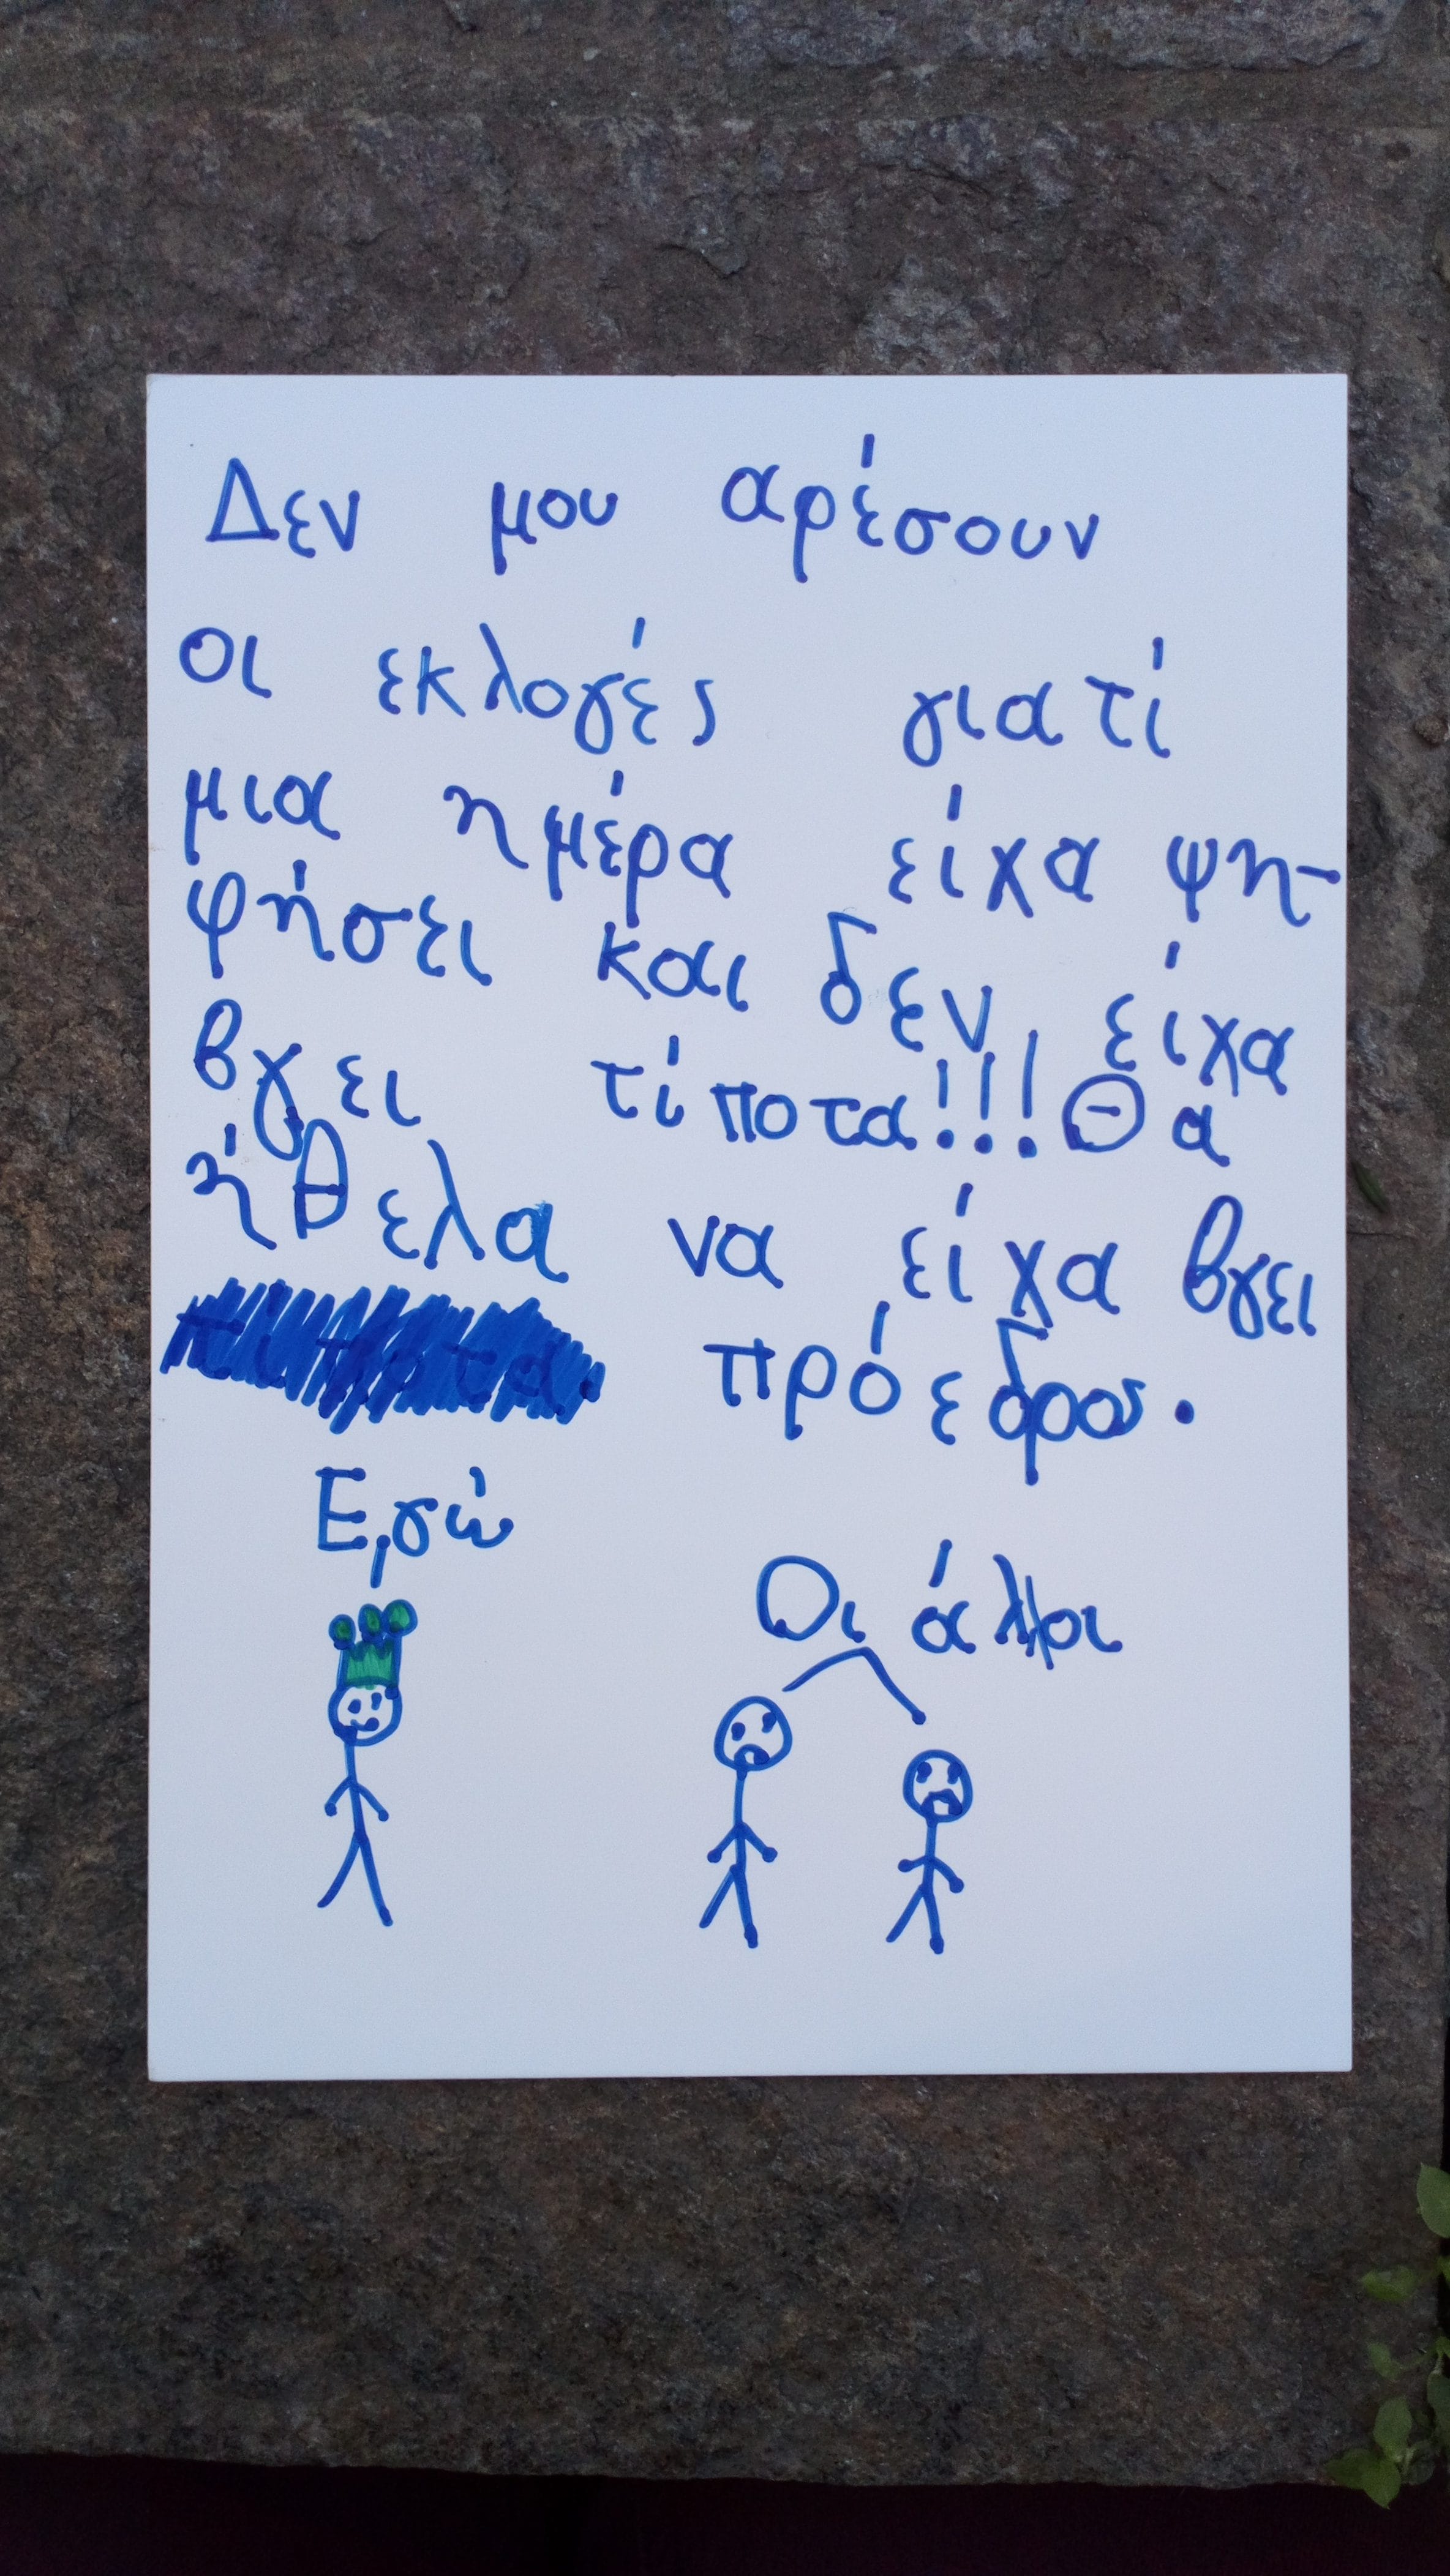 Δεν μου αρέσουν
οι εκλογές γιατί
μια ημέρα είχα ψη-
φήσει και δεν είχα
βγει τίποτα!!! Θα
ήθελα να είχα βγει
πρόεδρος.
Εγώ
Οι άλλοι